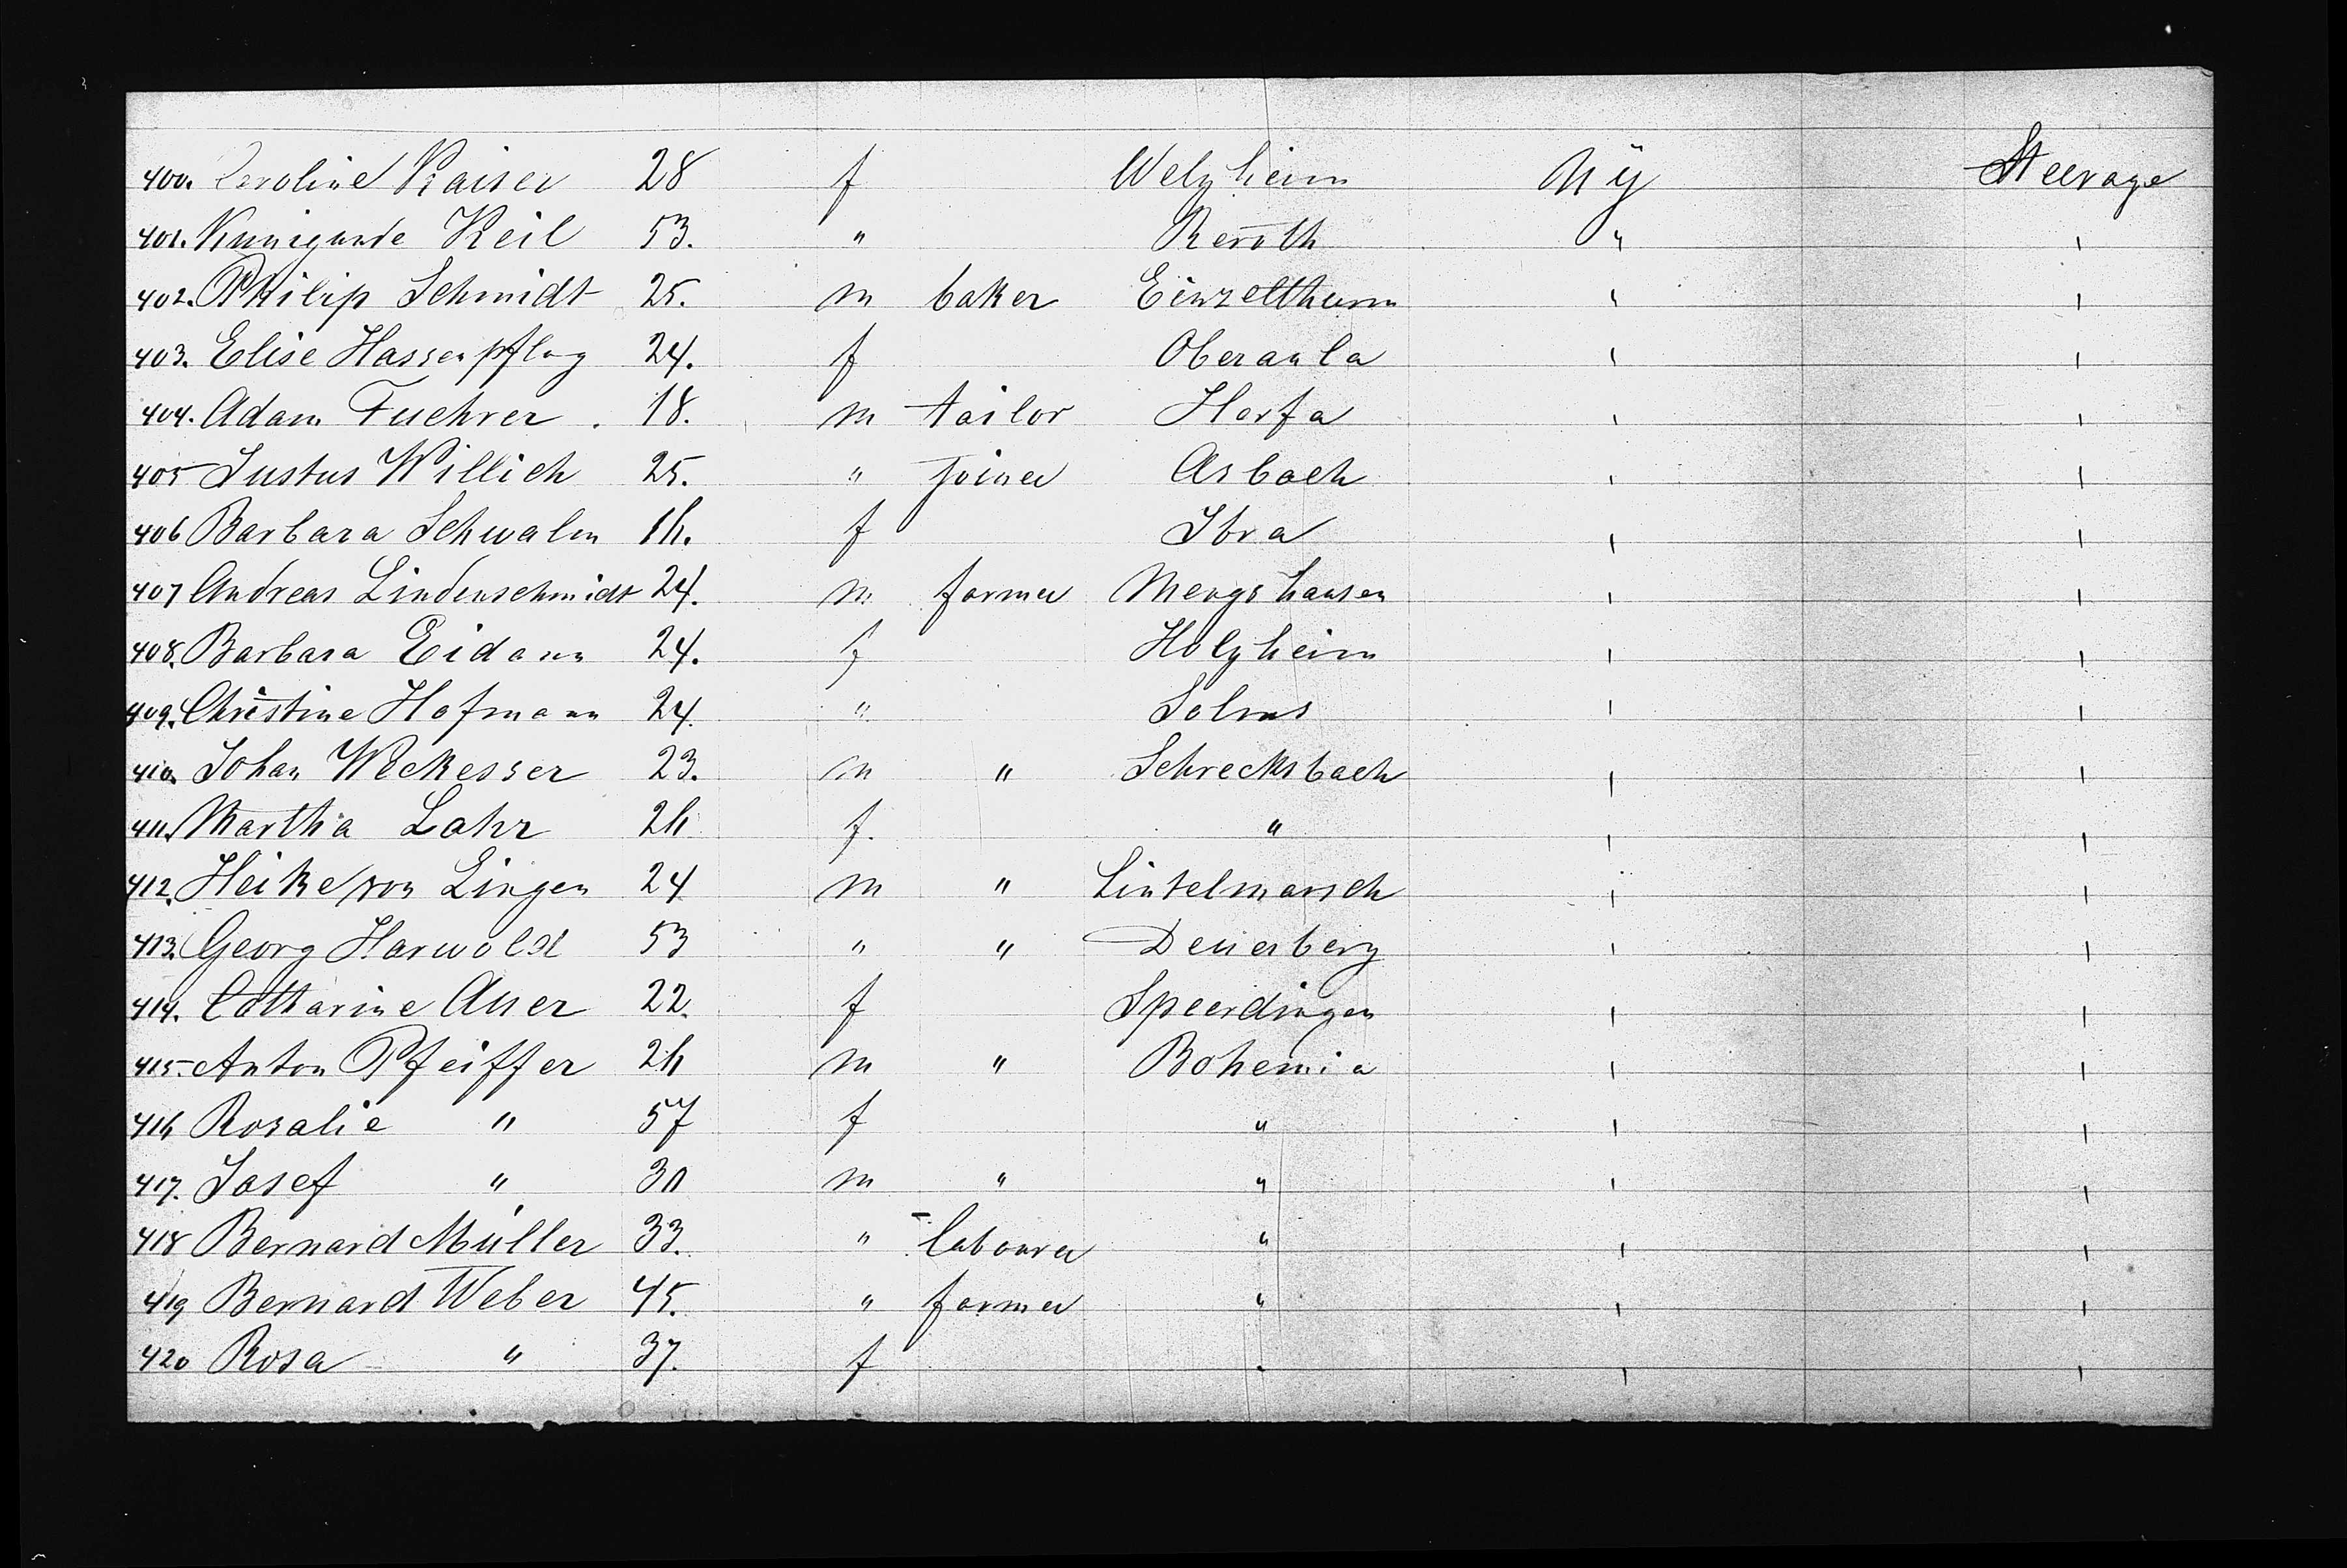 400. Caroline Kaiser 28 f Welzheim NY Steerage
401. Kunigunde Keil 53. " Reroth " '
402. Philip Schmidt 25. m baker Einzelthum ' '
403. Elise Hassenpflug 24. f Oberaula ' '
404. Adam Fuehrer. 18. m tailor Herfa ' '
405 Justus Willich 25. " Joiner Asbach ' '
406 Barbara Schwalm 16. f Ibra ' '
407 Andreas Lindenschmidt 24. m farmer Mengshausen ' '
408. Barbara Eidam 24. f Holzheim ' '
409. Christine Hofmann 24. " Solms ' '
410. Johan Weckesser 23. m " Schrecksbach ' '
411. Martha Lahr 26 f. " ' '
412. Heike von Lingen 24 m " Lintelmarsch ' '
413. Georg Harwold 53 " " Deuerberg ' '
414. Catharine Auer 22. f Speerdingen ' '
415. Anton Pfeiffer 26 m " Bohemia ' '
416 Rosalie " 57 f " ' '
417. Josef " 30 m " " ' '
418 Bernard Müller 33. " labourer " ' '
419 Bernard Weber 45. " farmer " ' '
420 Rosa " 37. f " ' '